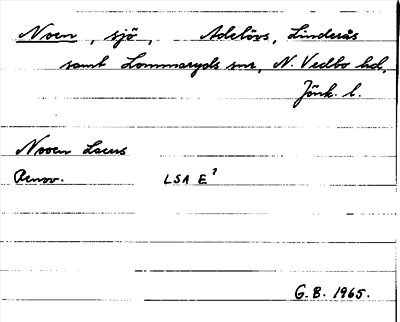 Noen, sjö, Adelövs, Linderås
samt Lommaryds snr, N. Vedbo hd,
Jönk. l.
Nooen Lacus
Renov. LSA E?
G.B. 1965.